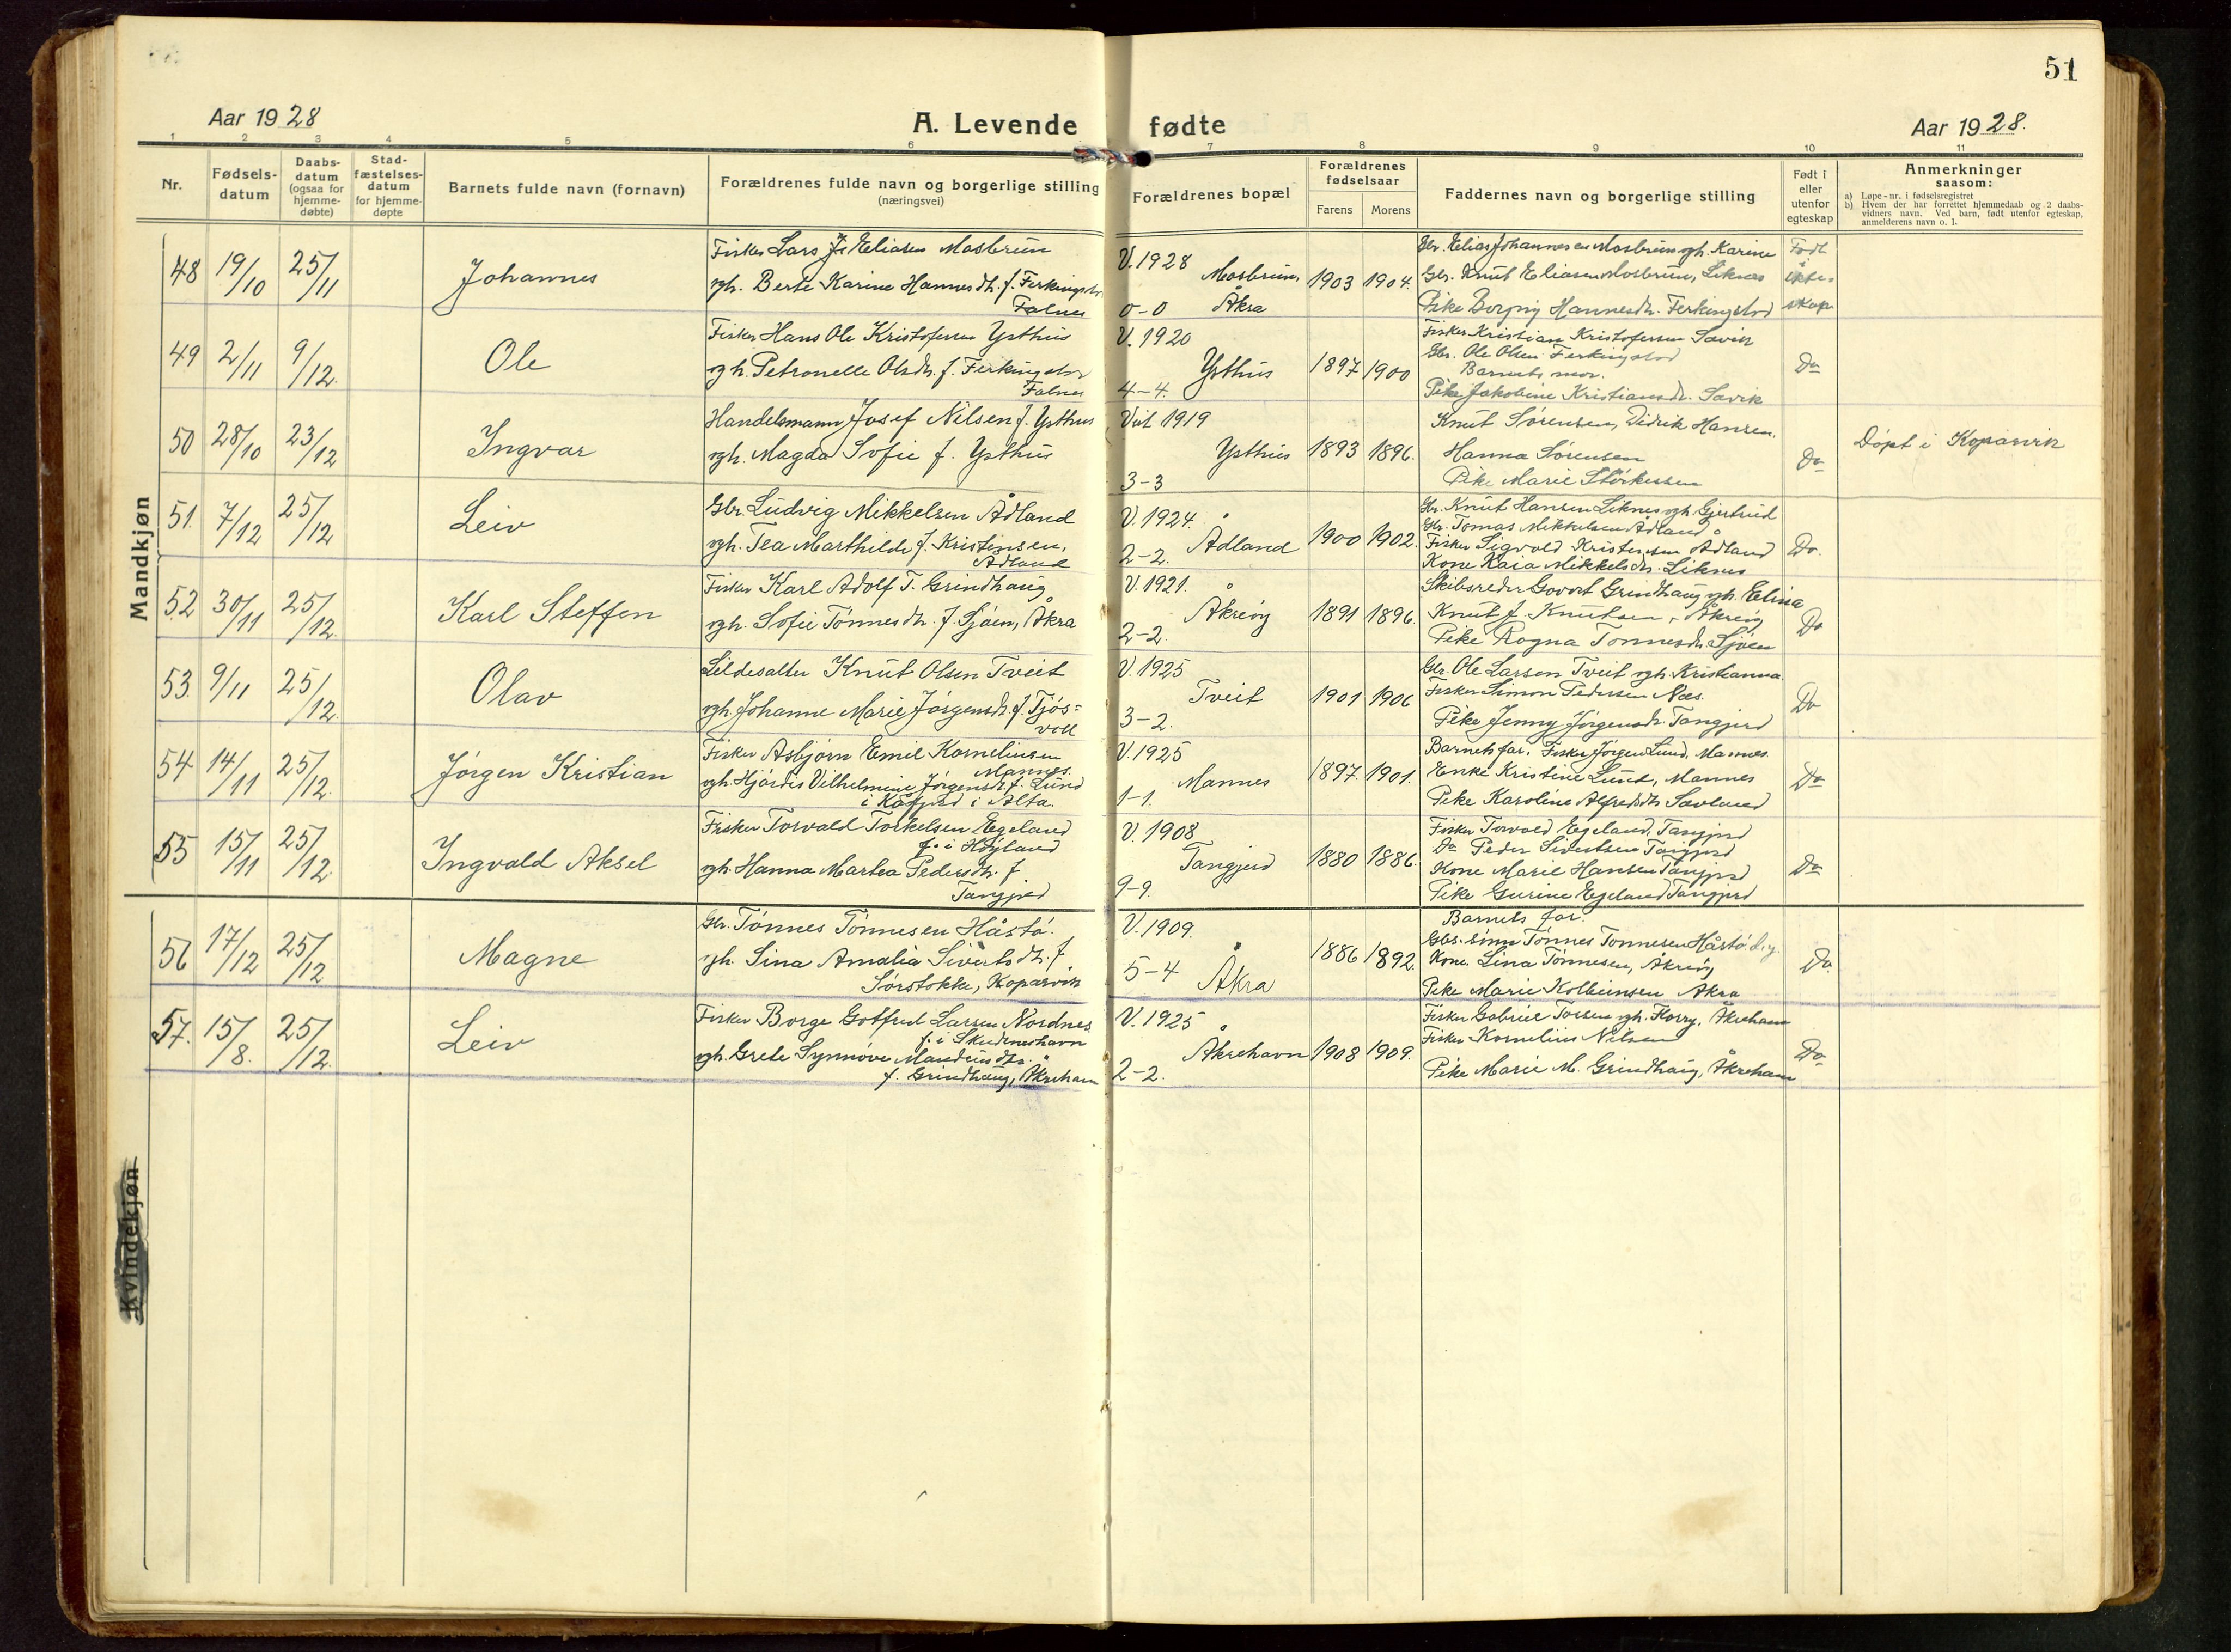 51
Aar 1928
A. Levende fødte
Aar 1928.
1 2 3 4 5 6 7 8 9 10 11
Nr.
Fødsels-
datum
Daabs-
datum
(ogsaa for
hjemme-
døbte)
Stad-
fæstelses-
datum
for hjemme-
døpte
Barnets fulde navn (fornavn)
Forældrenes fulde navn og borgerlige stilling
(næringsvei)
Forældrenes bopæl
Forældrenes
fødselsaar
Farens Morens
Faddernes navn og borgerlige stilling
Født i
eller
utenfor
egteskap
Anmerkninger
saasom:
a) Løpe-nr. i fødselsregistret
b) Hvem der har forrettet hjemmedaab og 2 daabs-
vidners navn. Ved barn, født utenfor egteskap,
anmelderens navn o. l.
Mandkjøn
48 19/10 25/11 Johannes
Fisker Lars Eliasen Mosbrun
vgh. Berte Karine Hannesdtr. f. Ferkingstad
Falnes
V. 1928
Mosbrun,
0-0 Åkra
1903 1904.
Gbr. Elias Johannesen Mosbrun vgh. Karine
Gbr. Knut Eliasen Mosbrun, Liknes
Pike Borgny Hannesdtr. Ferkingstad
Født
i
ekte-
skap
49 2/11 9/12. Ole
Fisker Hans Ole Kristofersen Ysthus
vgh. Petronelle Olsdtr. f. Ferkingstad
Falnes
V. 1920
Ysthus
4-4.
1897 1900
Fisker Kristian Kristofersen Sævik
Gbr. Ole Olsen Ferkingstad
Barnets mor.
Pike Jakobine Kristiansdtr. Sævik
Do
50 28/10 23/12 Ingvar
Handelsmann Josef Nilsen f. Ysthus
vgh. Magda Sofie f. Ysthus
Viet 1919
Ysthus
3-3
1893 1896.
Knut Sørensen, Didrik Hansen.
Hanna Sørensen
Pike Marie Størkersen
Do
Døpt i Kopervik
51. 7/12 25/12 Leiv
Gbr. Ludvig Mikkelsen Ådland
vgh. Tea Marthilde f. Kristensen,
Ådland
V. 1924.
Ådland
2-2.
1900 1902.
Gbr. Knut Hansen Liknes vgh. Gjertrud
Gbr. Tomas Mikkelsen Ådland
Fisker Sigvald Kristensen Ådland
Kone Kaia Mikkelsdtr. Liknes
Do.
52 30/11 25/12. Karl Steffen
Fisker Karl Adolf T. Grindhaug
vgh. Sofie Tønnesdtr. f. Sjøen, Åkra
V. 1921.
Åkreøy
2-2.
1891 1896.
Skibsreder Govert Grindhaug vgh. Elina
Knut J. Knutsen, Åkreøy
Pike Ragna Tønnesdtr. Sjøen
Do
53. 9/11 25/12. Olav
Sildesalter Knut Olsen Tveit
vgh. Johanne Marie Jørgensdtr. f. Tjøs=
voll
V. 1925
Tveit
3-2.
1901 1906
Gbr. Ole Larsen Tveit vgh. Kristianna
Fisker Simon Pedersen Næs.
Pike Jenny Jørgensdtr. Tangjerd
Do
54 14/11 25/12. Jørgen Kristian
Fisker Asbjørn Emil Korneliussen
Mannes.
vgh. Hjørdis Vilhelmine Jørgensdtr. f. Lund
i Kåfjord i Alta.
V. 1925
Mannes
1-1.
1897. 1901.
Barnets far. Fisker Jørgen Lund, Mannes.
Enke Kristine Lund, Mannes
Pike Karoline Alfredsdtr Sævland
Do
55 15/11 25/12. Ingvald Aksel
Fisker Torvald Torkelsen Egeland
f. i Høyland
vgh. Hanna Martea Pedersdtr. f.
Tangjerd
V. 1908
Tangjerd
9-9.
1880 1886.
Fisker Torvald Egeland, Tangjerd
Do Peder Sivertsen Tangjerd
Kone Marie Hansen Tangjerd
Pike Gurine Egeland Tangjerd
Do
56 17/12 25/12 Magne
Gbr. Tønnes Tønnesen Håstø.
vgh. Sina Amalia Sivertsdtr. f
Sørstokke, Kopervik
V. 1909.
5-4 Åkra
1886 1892.
Barnets far.
Gbr. sønn Tønnes Tønnesen Håstø d.y.
Kone Lina Tønnesen, Åkreøy
Pike Marie Kolbeinsen Åkra
Do
57. 15/8. 25/12. Leiv
Fisker Borge Gotfred Larsen Nordnes
f. i Skudeneshavn
vgh. Grete Synnøve Mandiusdtr.
f. Grindhaug, Åkrehamn
V. 1925
Åkrehavn
2-2.
1908 1909.
Fisker Gabriel Torsen vgh. Florry, Åkrehamn
Fisker Kornelius Nilsen
Pike Marie M. Grindhaug, Åkrehamn
Do
Kvindekjøn